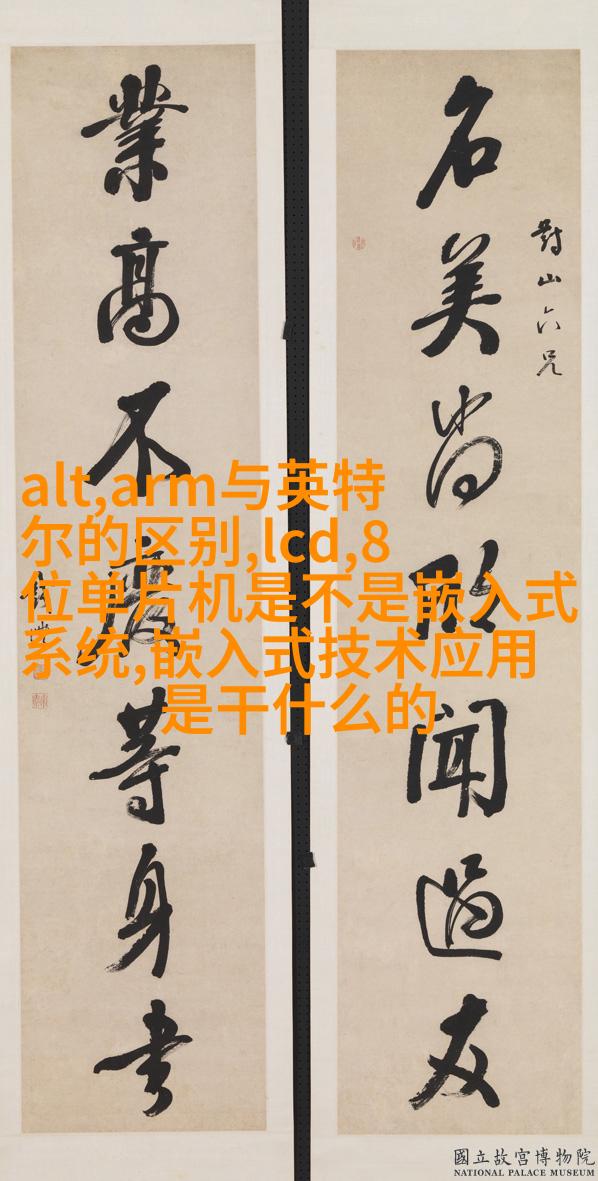 對山六兄
名美尚欣聞過友
業高不廢等身書
alt,arm与英特
尔的区别,lcd,8
位单片机是不是嵌入式
系统,嵌入式技术应用
是干什么的
國立故宮博物院
NATIONAL PALACE MUSEUM